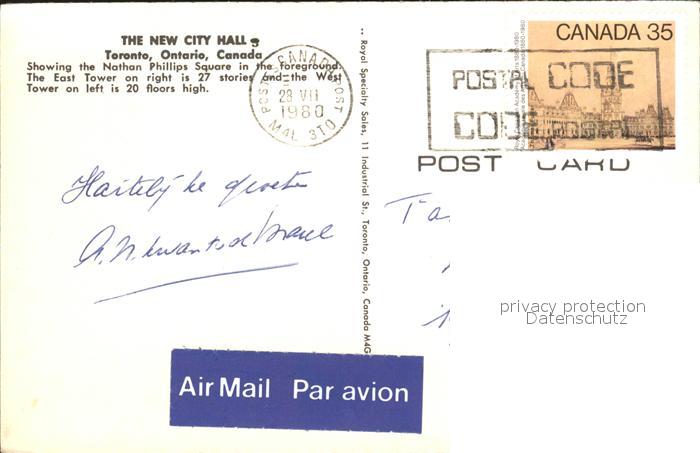 THE NEW CITY HALL
Toronto, Ontario, Canada
Showing the Nathan Phillips Square in the foreground.
The East Tower on right is 27 stories and the West
Tower on left is 20 floors high.
CANADA
POSTES POST
28 VII
1980
M4L 3T0
CANADA 35
POSTAL CODE
CODE POSTAL
POST CARD
Royal Specialty Sales, 11 Industrial St., Toronto, Ontario, Canada M4G
Hartelijke groeten
Air Mail Par avion
privacy protection
Datenschutz